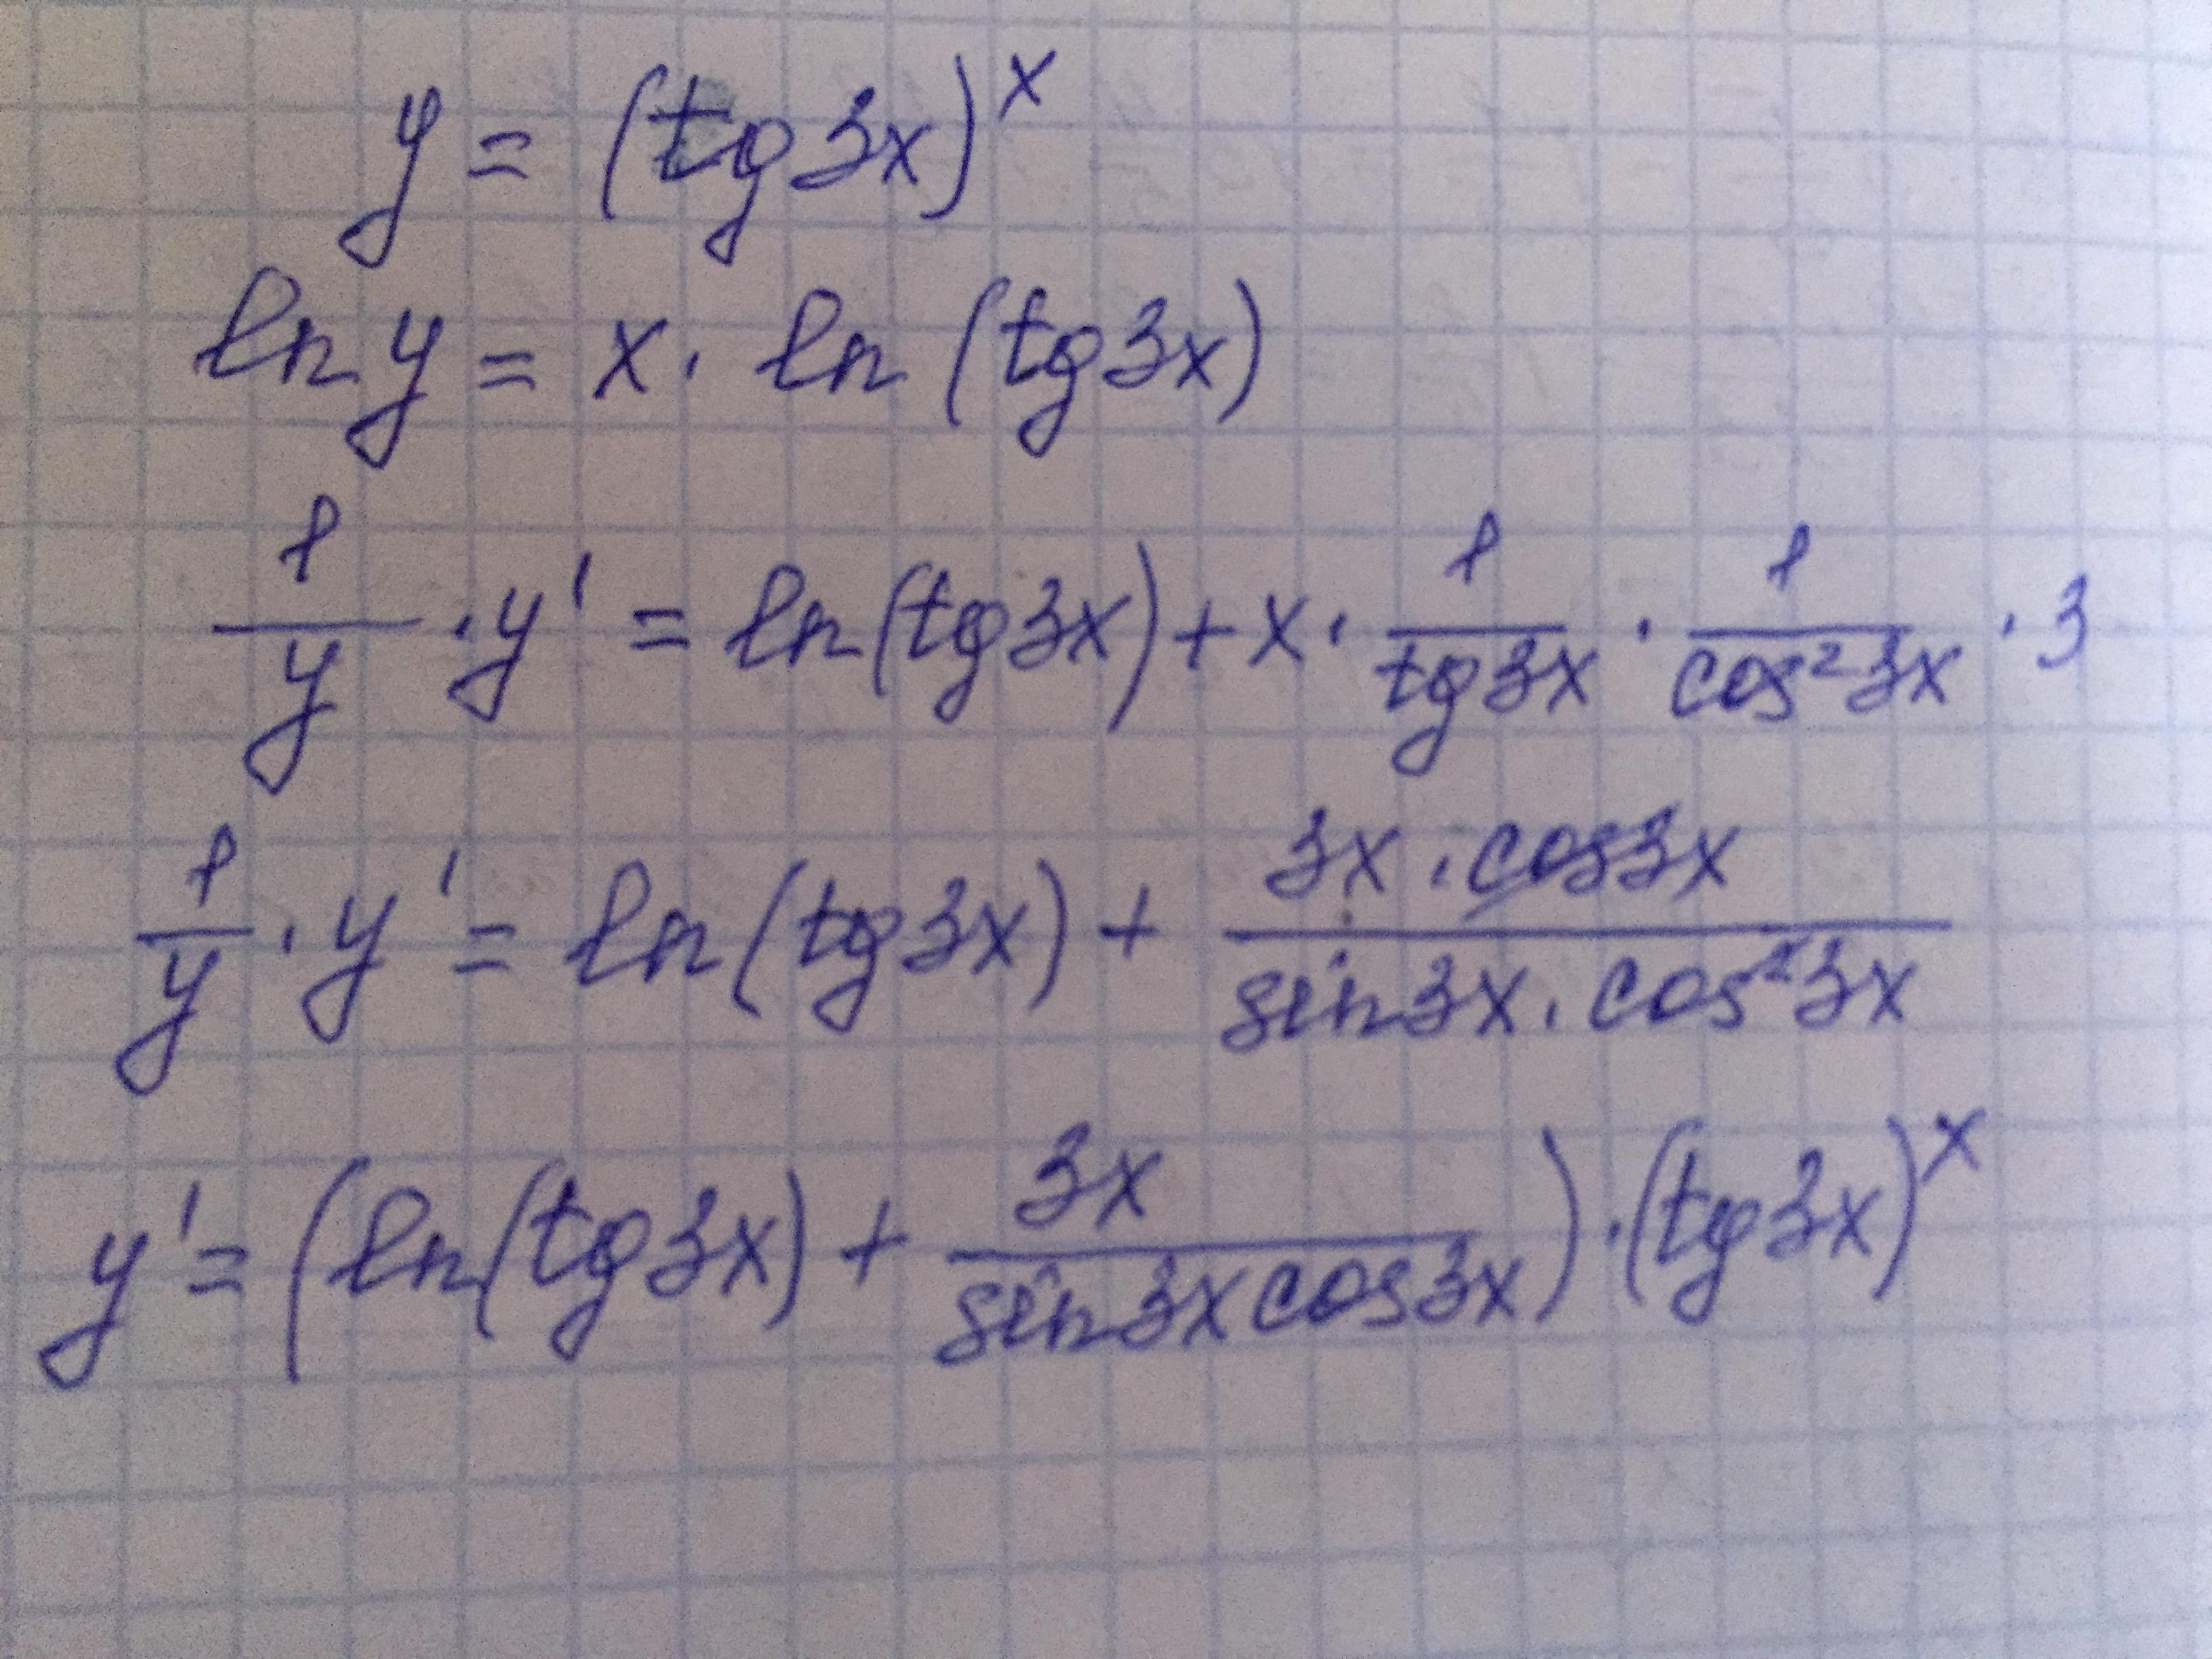 y = (tg3x)^x
ln y = x · ln (tg3x)
1/y · y' = ln(tg3x) + x · 1/tg3x · 1/cos²3x · 3
1/y · y' = ln(tg3x) + (3x · cos3x)/(sin3x · cos²3x)
y' = (ln(tg3x) + 3x/(sin3x cos3x)) · (tg3x)^x